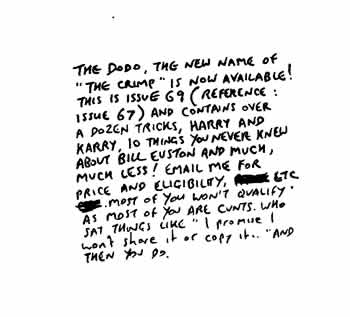 THE DODO, THE NEW NAME OF
"THE CRIMP" IS NOW AVAILABLE!
THIS IS ISSUE 69 (REFERENCE:
ISSUE 67) AND CONTAINS OVER
A DOZEN TRICKS, HARRY AND
KARRY, 10 THINGS YOU NEVER KNEW
ABOUT BILL EUSTON AND MUCH,
MUCH LESS! EMAIL ME FOR
PRICE AND ELIGIBILITY, ETC
. MOST OF YOU WON'T QUALIFY.
AS MOST OF YOU ARE CUNTS. WHO
SAT THINGS LIKE "I promise I
won't share it or copy it.. "AND
THEN YOU DO.